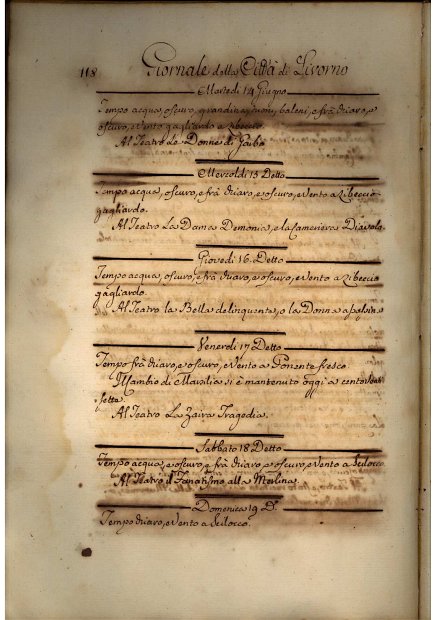 118
Giornale della Città di Livorno
Martedi 14 Giugno
Tempo acqua, oscuro, grandina, tuoni, baleni, e frà chiaro, e
oscuro, e Vento gagliardo a Libeccio.
Al Teatro Le Donne di Garbo
Mercoldi 15 Detto
Tempo acqua, oscuro, e frà chiaro, e oscuro, e Vento a Libeccio
gagliardo.
Al Teatro La Dama Demonia, e la Cameriera Diavolo.
Giovedi 16. Detto
Tempo acqua, oscuro, e frà chiaro, e oscuro, e Vento a Libeccio
gagliardo.
Al Teatro la Bella delinquente, o la Donna
Venerdi 17 Detto
Tempo frà chiaro, e oscuro, e Vento a Ponente fresco.
si è mantenuto oggi a
sette.
Al Teatro La Zaira Tragedia.
Sabbato 18 Detto
Tempo acqua, e oscuro, e frà chiaro, e oscuro, e Vento a Scilocco
Al Teatro il Fanatismo alla Moslina.
Domenica 19 D.
Tempo chiaro, e Vento a Scilocco.